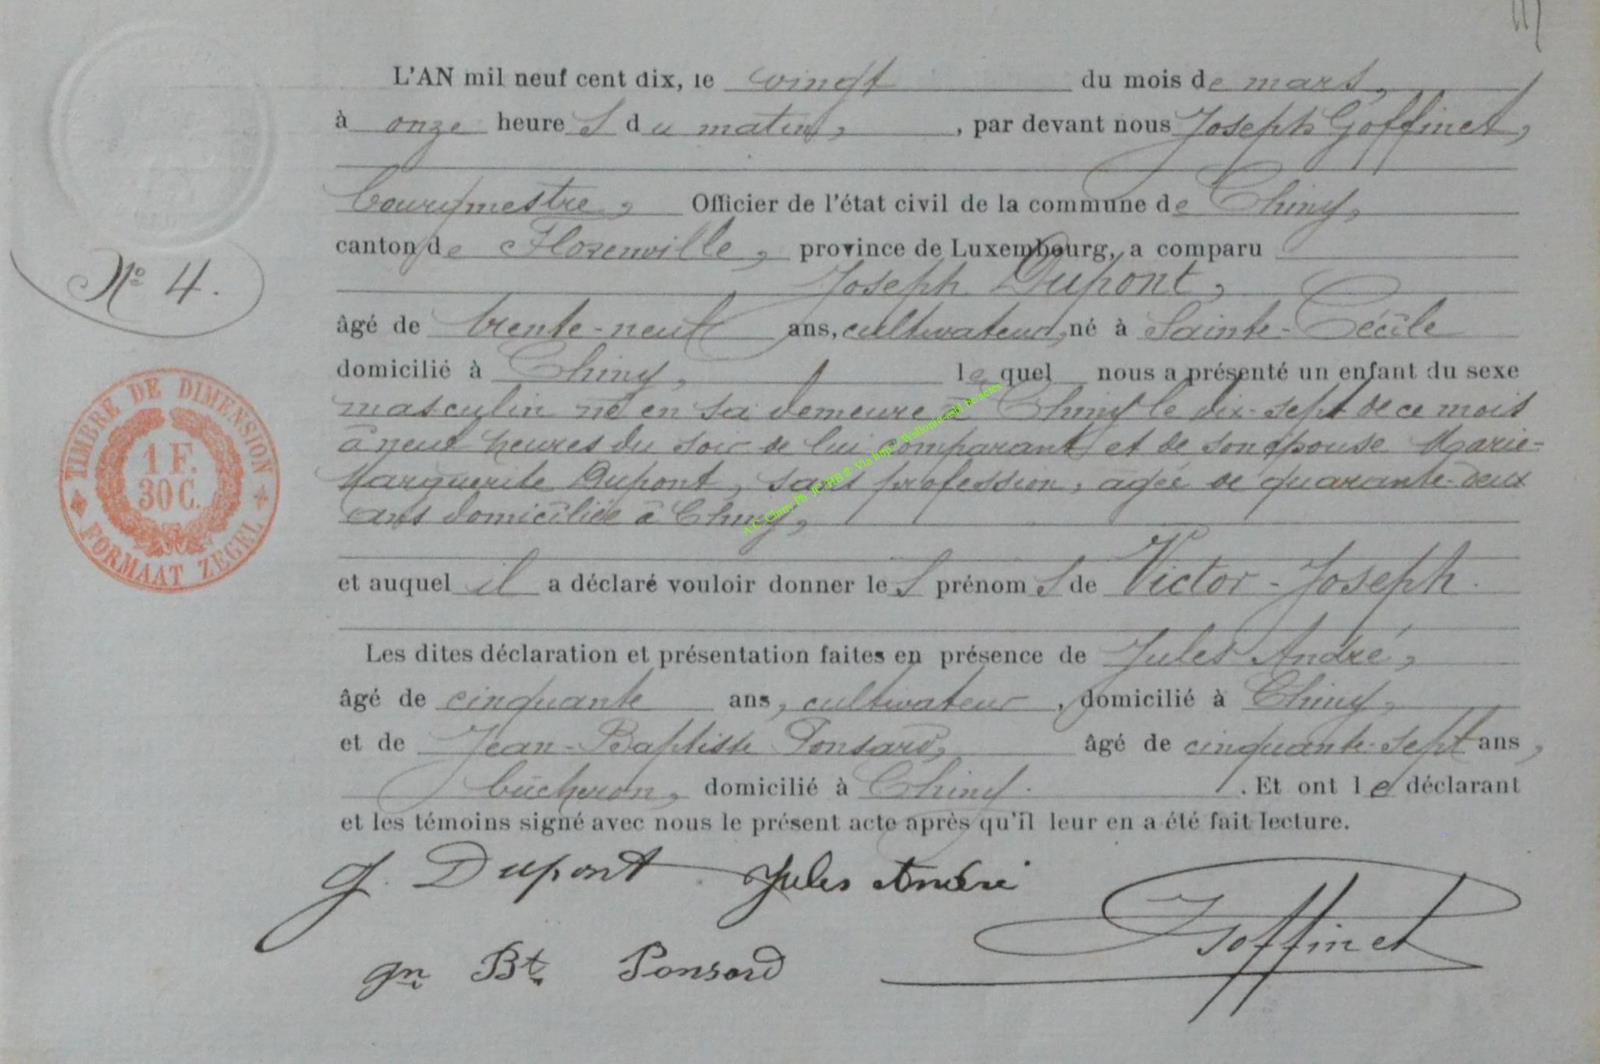 L'AN mil neuf cent dix, le vingt du mois de mars,
à onze heures du matin, , par devant nous Joseph Goffinet,
bourgmestre, Officier de l'état civil de la commune de Chiny,
canton de Florenville, province de Luxembourg, a comparu
Joseph Dupont,
âgé de trente-neuf ans, cultivateur, né à Sainte-Cécile
domicilié à Chiny, lequel nous a présenté un enfant du sexe
masculin né en sa demeure à Chiny le dix-sept de ce mois
à neuf heures du soir de lui comparant et de son épouse Marie-
Marguerite Dupont, sans profession, agée de quarante-deux
ans domiciliée à Chiny,
et auquel il a déclaré vouloir donner les prénoms de Victor-Joseph.
Les dites déclaration et présentation faites en présence de Jules André,
âgé de cinquante ans, cultivateur, domicilié à Chiny,
et de Jean-Baptiste Ponsard, âgé de cinquante-sept ans,
bûcheron, domicilié à Chiny. . Et ont le déclarant
et les témoins signé avec nous le présent acte après qu'il leur en a été fait lecture.
J. Dupont Jules André
Jn Bte Ponsard Goffinet
N° 4.
TIMBRE DE DIMENSION
1 F.
30 C.
FORMAAT ZEGEL